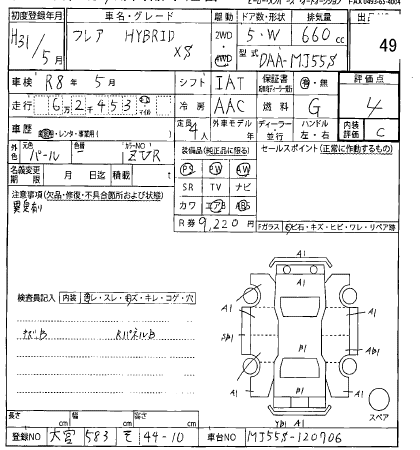 初度登録年月 車名・グレード 駆動 ドア数・形状 排気量
H31/5月 フレア HYBRID XS 2WD 4WD 5・W 660cc 49
型式 DAA-MJ55S
車検 R8年5月 シフト IAT 保証書 有・無 評価点
走行 6万2千453 km マイル 冷房 AAC 燃料 G 4
車歴 自家用・レンタ・事業用( ) 定員 4人 外車モデル 年 ディーラー 並行 ハンドル 左・右 内装評価 C
外色 元色 パール 色替 - カラーNO ZVR 装備品(純正品に限る) セールスポイント(正常に作動するもの)
名義変更期限 月 日迄 積載 t PS PW AW
注意事項(欠品・修復・不具合箇所および状態) SR TV ナビ
異臭有り カワ エアB ABS
R券 9,220円 Fガラス 飛ビ石・キズ・ヒビ・ワレ・リペア跡
検査員記入 内装 汚レ・スレ・キズ・キレ・コゲ・穴
A1
A1 A1
A1 A1
B1
A1
A1 A1
A1
スペア
長さ cm 幅 cm 高さ cm
登録NO 大宮 583 そ 44-10 車台NO MJ55S-120706